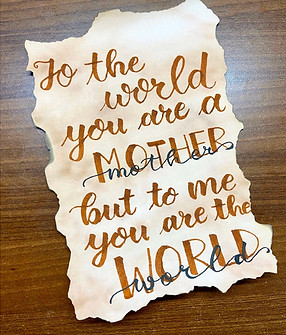 To the
world
you are a
MOTHER
mother
but to me
you are the
WORLD
world